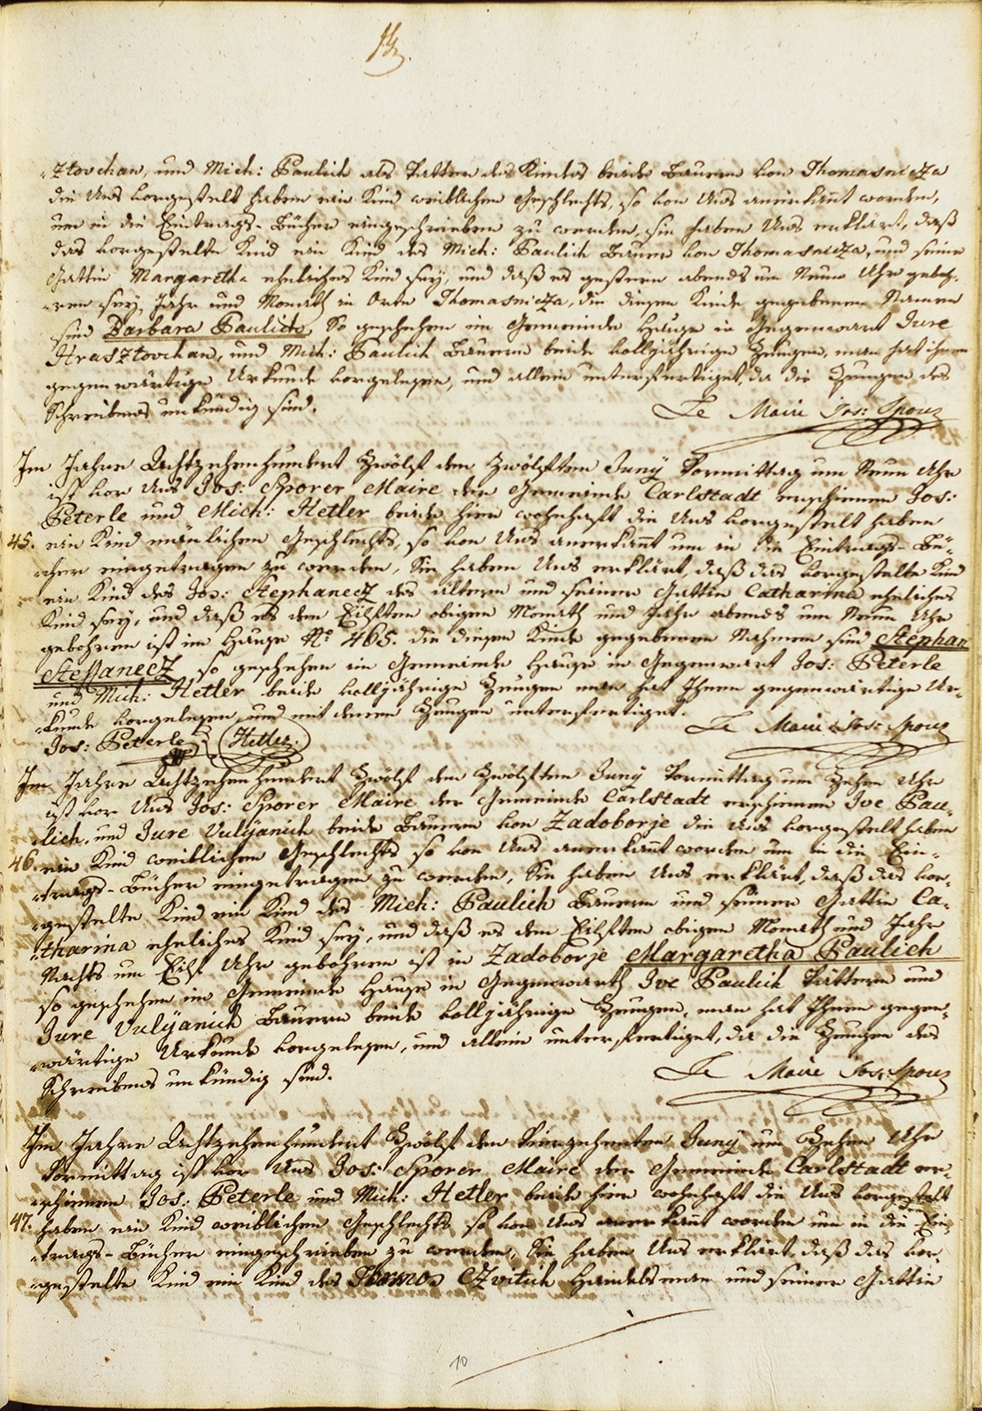 -ztovchan, und Mich: Paulich als Vattern des Kindes beide Bauern von Thomasnicza
die Uns vorgestelt haben ein Kind weiblichen Geschlechts, so von Uns anerkant worden,
um in die Eintrags-Bücher eingeschrieben zu werden, sie haben Uns erklärt, daß
das vorgestelte Kind ein Kind des Mich: Paulich Bauern von Thomasnicza, und seiner
Gattin Margaretha eheliches Kind sey, und daß es gestern abends um Neun Uhr geboh-
-ren sey, Jahr und Monath in Orte Thomasnicza, die diesem Kinde gegebenen Namen
sind Barbara Paulich, So geschehen im Gemeinde Hause in Gegenwart Jure
Hrasztovchan, und Mich: Paulich Bauern beide volljährige Zeugen, man hat ihnen
gegenwärtige Urkunde vorgelesen, und allein unterfertiget, da die Zeugen des
Schreibens unkündig sind.
Le Maire Jos: Sporer
Im Jahre Achtzehenhundert Zwölf den Zwölften Juny Vormittag um Neun Uhr
ist vor Uns Jos: Sporer Maire der Gemeinde Carlstadt erschienen Jos:
Peterle und Mich: Hetler beide hier wohnhaft die Uns vorgestelt haben
45. ein Kind mänlichen Geschlechts, so von Uns anerkant um in die Eintrags-Bü-
-cher eingetragen zu werden, Sie haben Uns erklärt, daß das vorgestelte Kind
ein Kind des Jos: Stephanecz des ältern und seiner Gattin Catharina eheliches
Kind sey, und daß es den Eilften obigen Monath und Jahr abends um Neun Uhr
gebohren ist im Hause No 465. die diesem Kinde gegebenen Nahmen sind Stephan
Steffanecz, so geschehen im Gemeinde Hause in Gegenwart Jos: Peterle
und Mich: Hetler beide volljährige Zeugen man hat Ihnen gegenwärtige Ur-
-kunde vorgelesen, und mit denen Zeugen unterfertiget.
Le Maire Jos: Sporer
Jos: Peterle Hetler.
Im Jahre Achtzehenhundert Zwölf den Zwölften Juny Vormittag um Zehen Uhr
ist vor Uns Jos: Sporer Maire der Gemeinde Carlstadt erschienen Ive Pau-
-lich, und Jure Vulÿanich beide Bauern von Zadoborje die Uns vorgestelt haben
46. ein Kind weiblichen Geschlechts so von Uns anerkant worden um in die Ein-
-trags-Bücher eingetragen zu werden, Sie haben Uns erklärt, daß das vor-
-gestelte Kind ein Kind des Mich: Paulich Bauern und seiner Gattin Ca-
-tharina eheliches Kind sey, und daß es den Eilften obigen Monath und Jahr
Nachts um Eilf Uhr gebohren ist in Zadoborje Margaretha Paulich
so geschehen im Gemeinde Hause in Gegenwarth Ive Paulich Vättern und
Jure Vulÿanich Bauern beide volljährige Zeugen, man hat Ihnen gegen-
-wärtige Urkunde vorgelesen, und allein unterfertiget, da die Zeugen des
Schreibens unkündig sind.
Le Maire Jos: Sporer
Im Jahre Achtzehenhundert Zwölf den Vierzehenten Juny um Zehen Uhr
Vormittag ist vor Uns Jos: Sporer Maire der Gemeinde Carlstadt er-
-schienen Jos: Peterle und Mich: Hetler beide hier wohnhaft die Uns vorgestelt
47. haben ein Kind weiblichen Geschlechts so von Uns anerkant worden um in die Ein-
-trags-Bücher eingeschrieben zu werden, Sie haben Uns erklärt, daß das vor-
-gestelte Kind ein Kind des Czvitich Handelsman und seiner Gattin
10